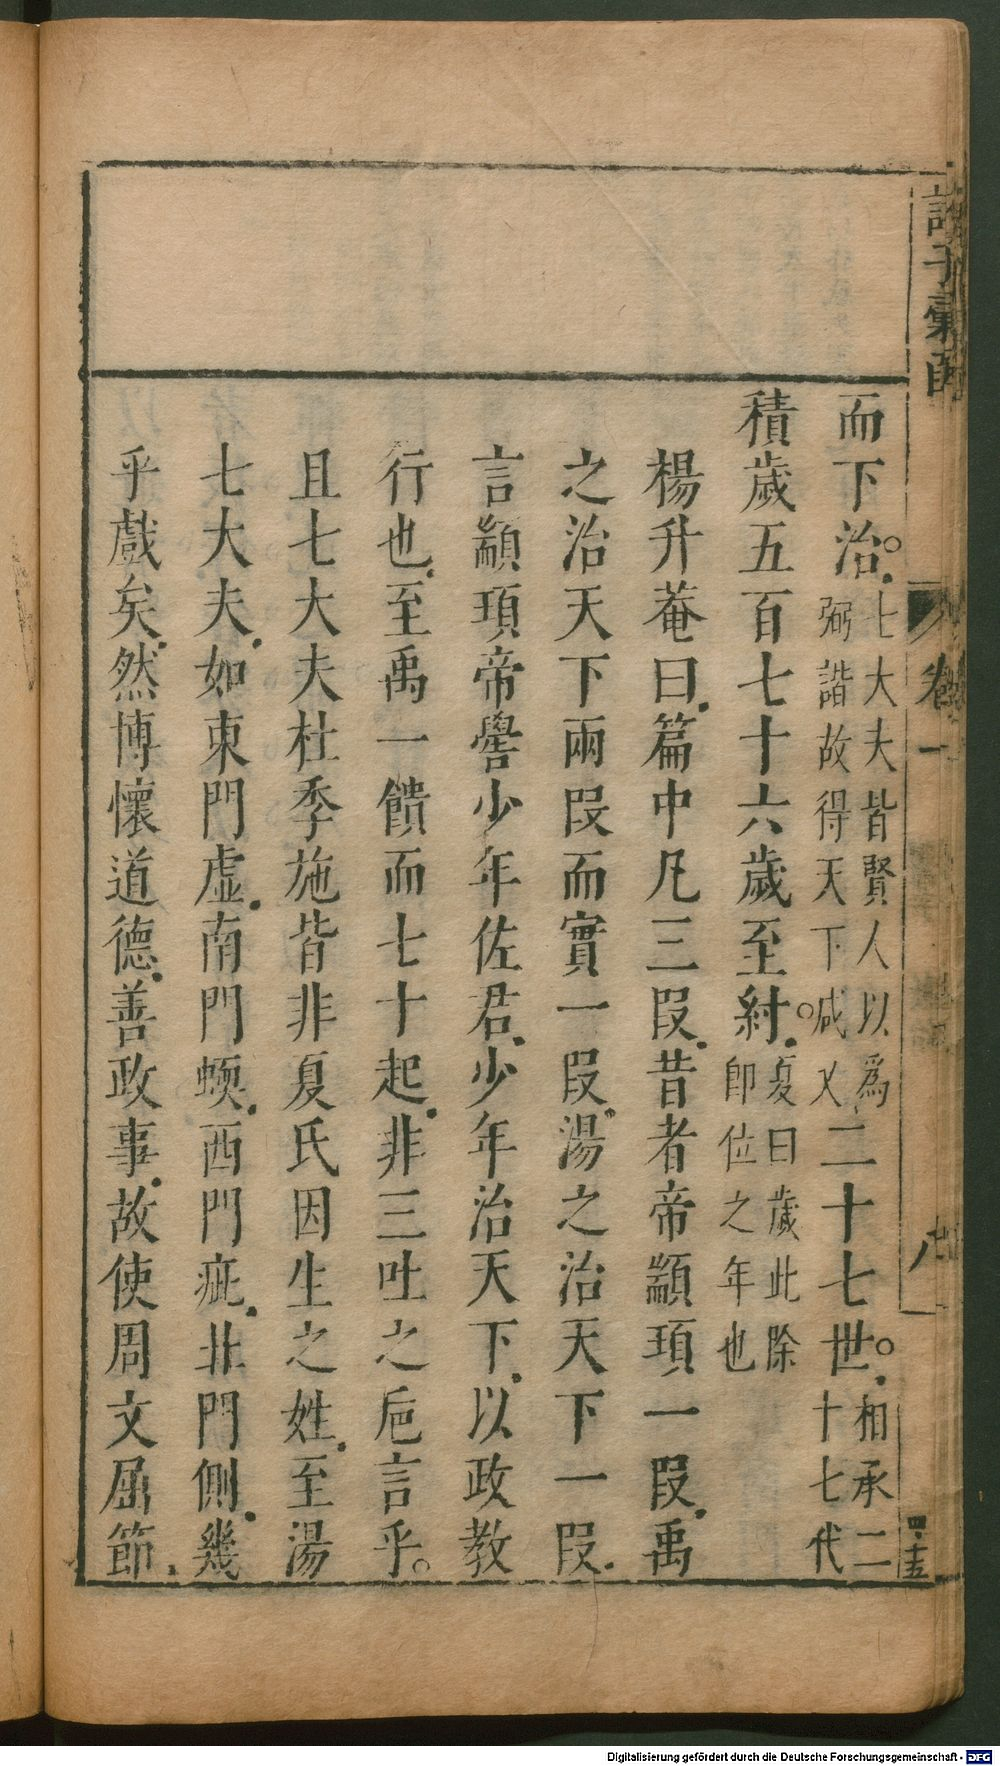 諸子彙函
卷一
四·十五
而下治。七大夫皆賢人以為
弼諧故得天下咸乂二十七世。相承二
十七代
積歲五百七十六歲至紂。夏曰歲此除
即位之年也
楊升菴曰篇中凡三段昔者帝顓頊一段禹
之治天下兩段而實一段湯之治天下一段
言顓頊帝嚳少年佐君少年治天下以政教
行也至禹一饋而七十起非三吐之巵言乎。
且七大夫杜季施皆非夏氏因生之姓至湯
七大夫如東門虛南門蝡西門疵北門側幾
乎戲矣然博懷道德善政事故使周文屈節
Digitalisierung gefördert durch die Deutsche Forschungsgemeinschaft - DFG